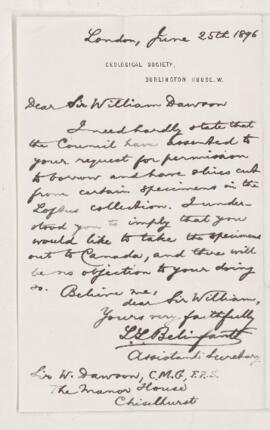 London, June 25th 1896
GEOLOGICAL SOCIETY,
BURLINGTON HOUSE. W.
Dear Sir William Dawson
I need hardly state that
the Council have assented to
your request for permission
to borrow and have slices cut
from certain specimens in the
Loftus collection. I under-
stood you to imply that you
would like to take the specimens
out to Canada, and there will
be no objection to your doing
so. Believe me,
dear Sir William,
Yours very faithfully
L L Belinfante
Assistant Secretary
Sir W. Dawson, C.M.G, F.R.S.
The Manor House
Chiselhurst